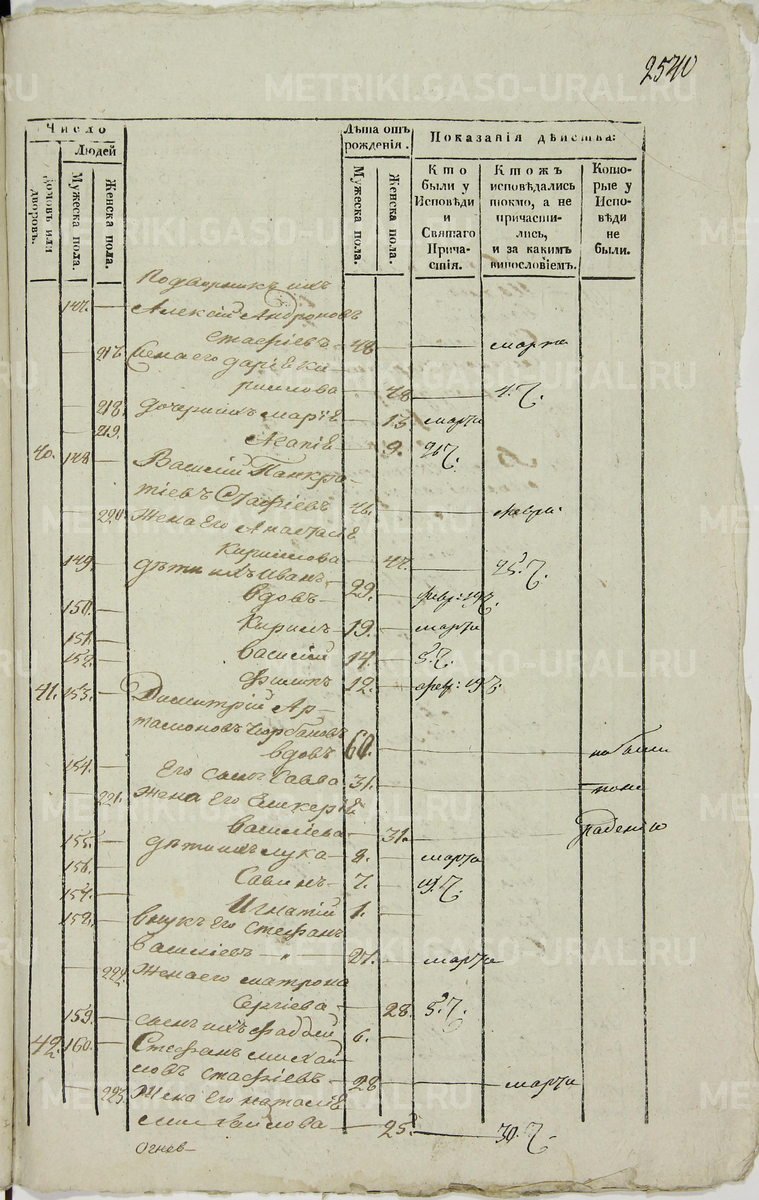 2540
Число
Людей
домовъ или дворовъ.
Мужеска пола.
Женска пола.
Лѣта отъ рожденія.
Мужеска пола.
Женска пола.
Показанія дѣйства:
Кто были у Исповѣди и Святаго Причастія.
Ктожъ исповѣдались токмо, а не причастились, и за какимъ винословіемъ.
Которые у Исповѣди не были.
147. Алексій Андроновъ
Стафіевъ 48 марта
217. Жена его дарія Ки
рилова 48 4. Ч.
218. дочери ихъ марія 13 марта
219. Агапія 9. 21 Ч.
40. 148. Василій Панкра
тіевъ Стафіевъ 46.
220. Жена Его Анастасія
Кирилова 47. 25. Ч.
149. дѣти ихъ Иванъ
вдовъ 29. февр: 19 Ч.
150. Кирилъ 19. марта
151. Василій 14. 5. Ч.
152. Филипъ 12. февр: 19 Ч.
41. 153. Димитрій Ар
тамоновъ
вдовъ 60. не были
154. Его сынъ Савва 31. по не
221. Жена Его Гликерія
Василіева 31. радѣнію
155. дѣти ихъ лука 8. марта
156. Савинъ 7. 19. Ч.
157. Игнатій 1.
158. внукъ Его Стефанъ
Василіевъ 27. марта
222. Жена его матрона
Сергіева 28. 5. Ч.
159. сынъ ихъ Фаддей 6.
42. 160. Стефанъ михай
ловъ Стафіевъ 28 марта
223. Жена Его наталія
михайлова 25. 30. Ч.
Огнев
METRIKI.GASO-URAL.RU